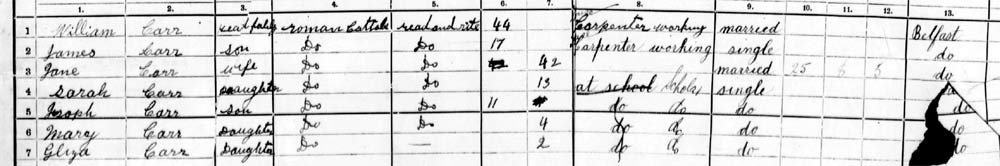 1. 2. 3. 4. 5. 6. 7. 8. 9. 10. 11. 12. 13.
1 William Carr roman Cattolc read and rite 44 Carpenter working married Belfast
2 James Carr son Do Do 17 Carpenter working single do
3 Jane Carr wife Do Do 42 married 25 do
4 Sarah Carr Daughter Do Do 13 at school single
5 Joseph Carr son Do Do 11 do do do do
6 Mary Carr Daughter Do Do 4 do do do do
7 Gliza Carr Daughter Do — 2 do do do do